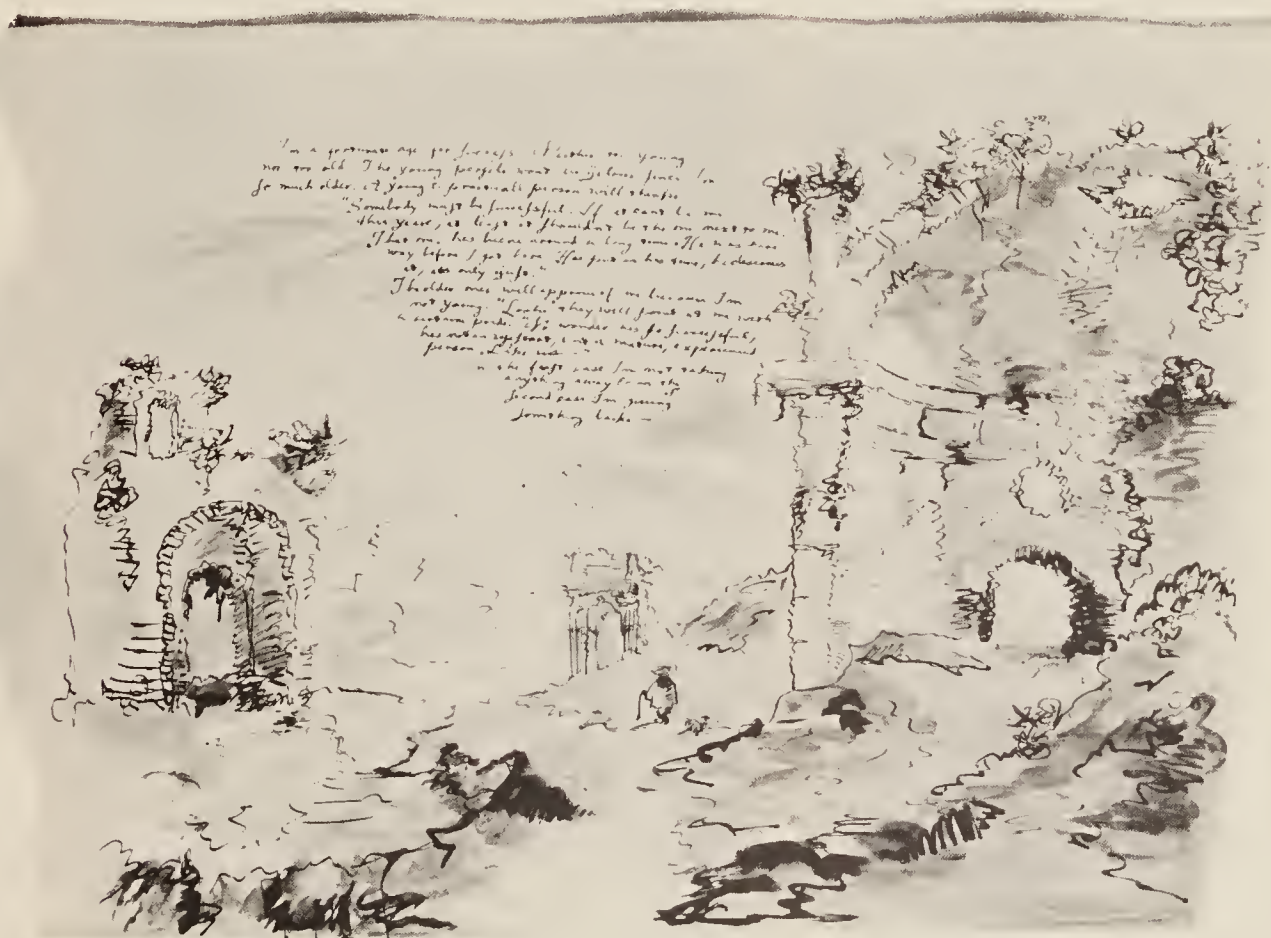 I'm a fortunate age for success. Neither too young
nor too old. The young people wont be jelous since I'm
so much older. A young & promising person will
"Somebody must be successful. If it cant be me
this year, at least it shouldn't be the one next to me.
That one has been around a long time. He was here
way before I got here. Has put in his time, he deserves
it, its only just."
The older ones will approve of me because I'm
not young. "Look" they will point at me with
a certain pride. "No wonder hes so successful,
hes not an upstart, but a mature, experienced
person like us."
In the first case I'm not taking
anything away. In the
second case I'm giving
something back —